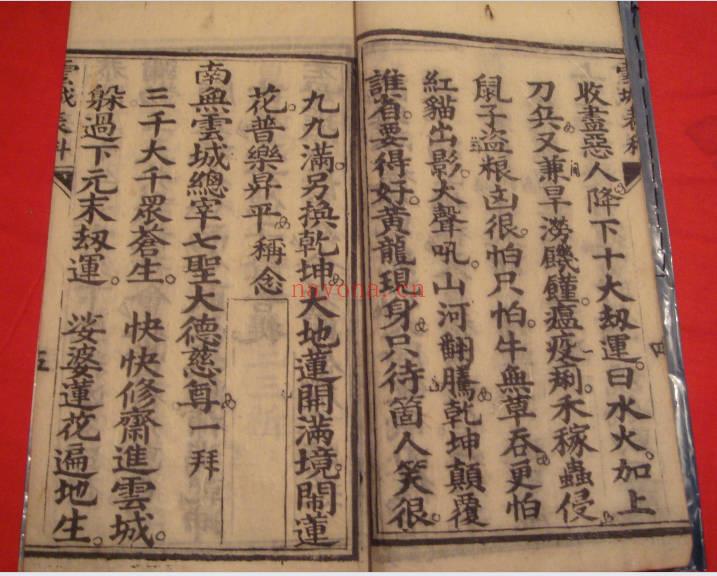 雲城表科
四
收盡惡人降下十大刼運曰水火加上
刀兵又兼旱澇饑饉瘟疫痢。禾稼蟲侵
鼠子盗粮凶很。怕只怕牛無草吞。更怕
紅貓出影。大聲吼。山河翻騰。乾坤顛覆
誰有。要得好。黄龍現身。只待箇人笑很。
九九滿另換乾坤。大地蓮開滿境。閙蓮
花。普樂昇平。稱念
南無雲城總宰七聖大德慈尊一拜
三千大千眾蒼生。快快修齋進雲城。
躲過下元末刼運。娑婆蓮花遍地生。
雲城表科
五
nayona.cn